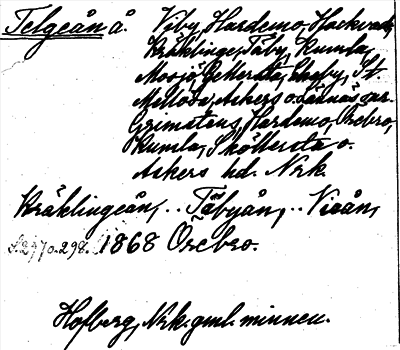 Telgeån å. Viby, Hardemo, Hackvad,
Kräklinge, Täby, Kumla,
Mosjö, Gellersta, Ekeby, St.
Mellösa, Askers o. Lännäs sar.
Grimstens, Hardemo, Örebro,
Kumla, Sköllersta o.
Askers hd. Nrk.
Kräklingeån, .. Täbyån, .. Vieån,
s. 297 o. 298. 1868 Örebro.
Hofberg, Nrk. gml. minnen.